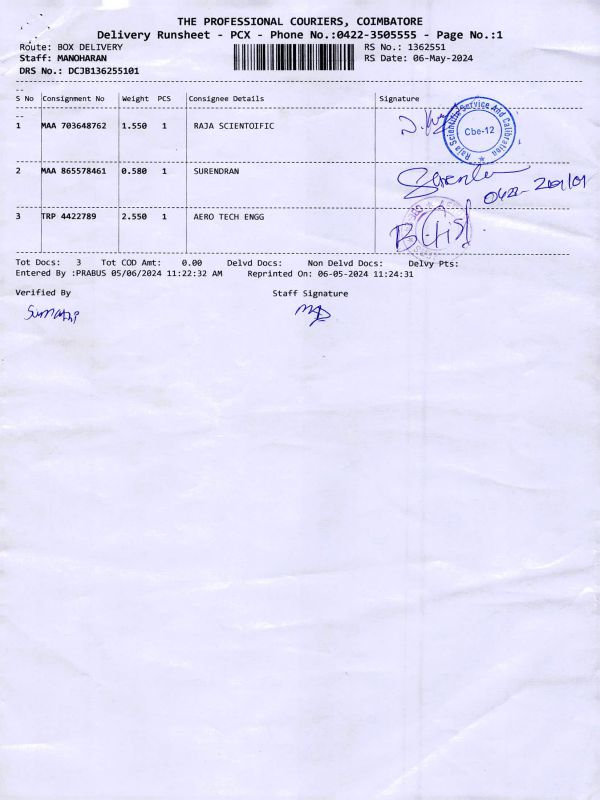 THE PROFESSIONAL COURIERS, COIMBATORE
Delivery Runsheet - PCX - Phone No.:0422-3505555 - Page No.:1
Route: BOX DELIVERY RS No.: 1362551
Staff: MANOHARAN RS Date: 06-May-2024
DRS No.: DCJB136255101
S No Consignment No Weight PCS Consignee Details Signature
1 MAA 703648762 1.550 1 RAJA SCIENTOIFIC
Raja Scientific Service And Calibration
Cbe-12
2 MAA 865578461 0.580 1 SURENDRAN
Surendran
3 TRP 4422789 2.550 1 AERO TECH ENGG
Tot Docs: 3 Tot COD Amt: 0.00 Delvd Docs: Non Delvd Docs: Delvy Pts:
Entered By :PRABUS 05/06/2024 11:22:32 AM Reprinted On: 06-05-2024 11:24:31
Verified By Staff Signature
Sumathi